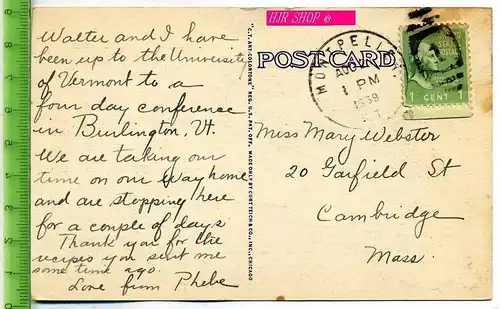 HJR SHOP ®
Walter and I have
been up to the University
of Vermont to a
four day conference
in Burlington, Vt.
We are taking our
time on our way home
and are stopping here
for a couple of days.
Thank you for the
recipes you sent me
some time ago.
Love from Phebe
"C.T. ART-COLORTONE" REG. U.S. PAT. OFF. MADE ONLY BY CURT TEICH & CO., INC., CHICAGO
POST CARD
MONTPELIER
AUG
1 PM
1939
1 CENT 1
Miss Mary Webster
20 Garfield St
Cambridge
Mass.